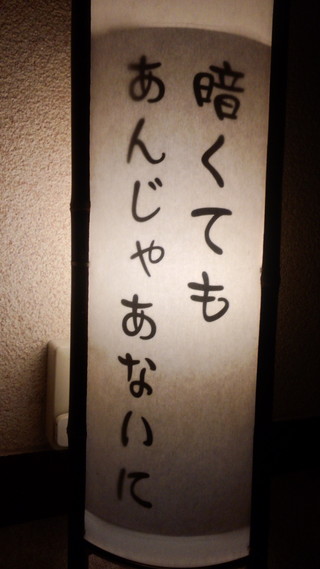 暗くても
あんじゃあないに